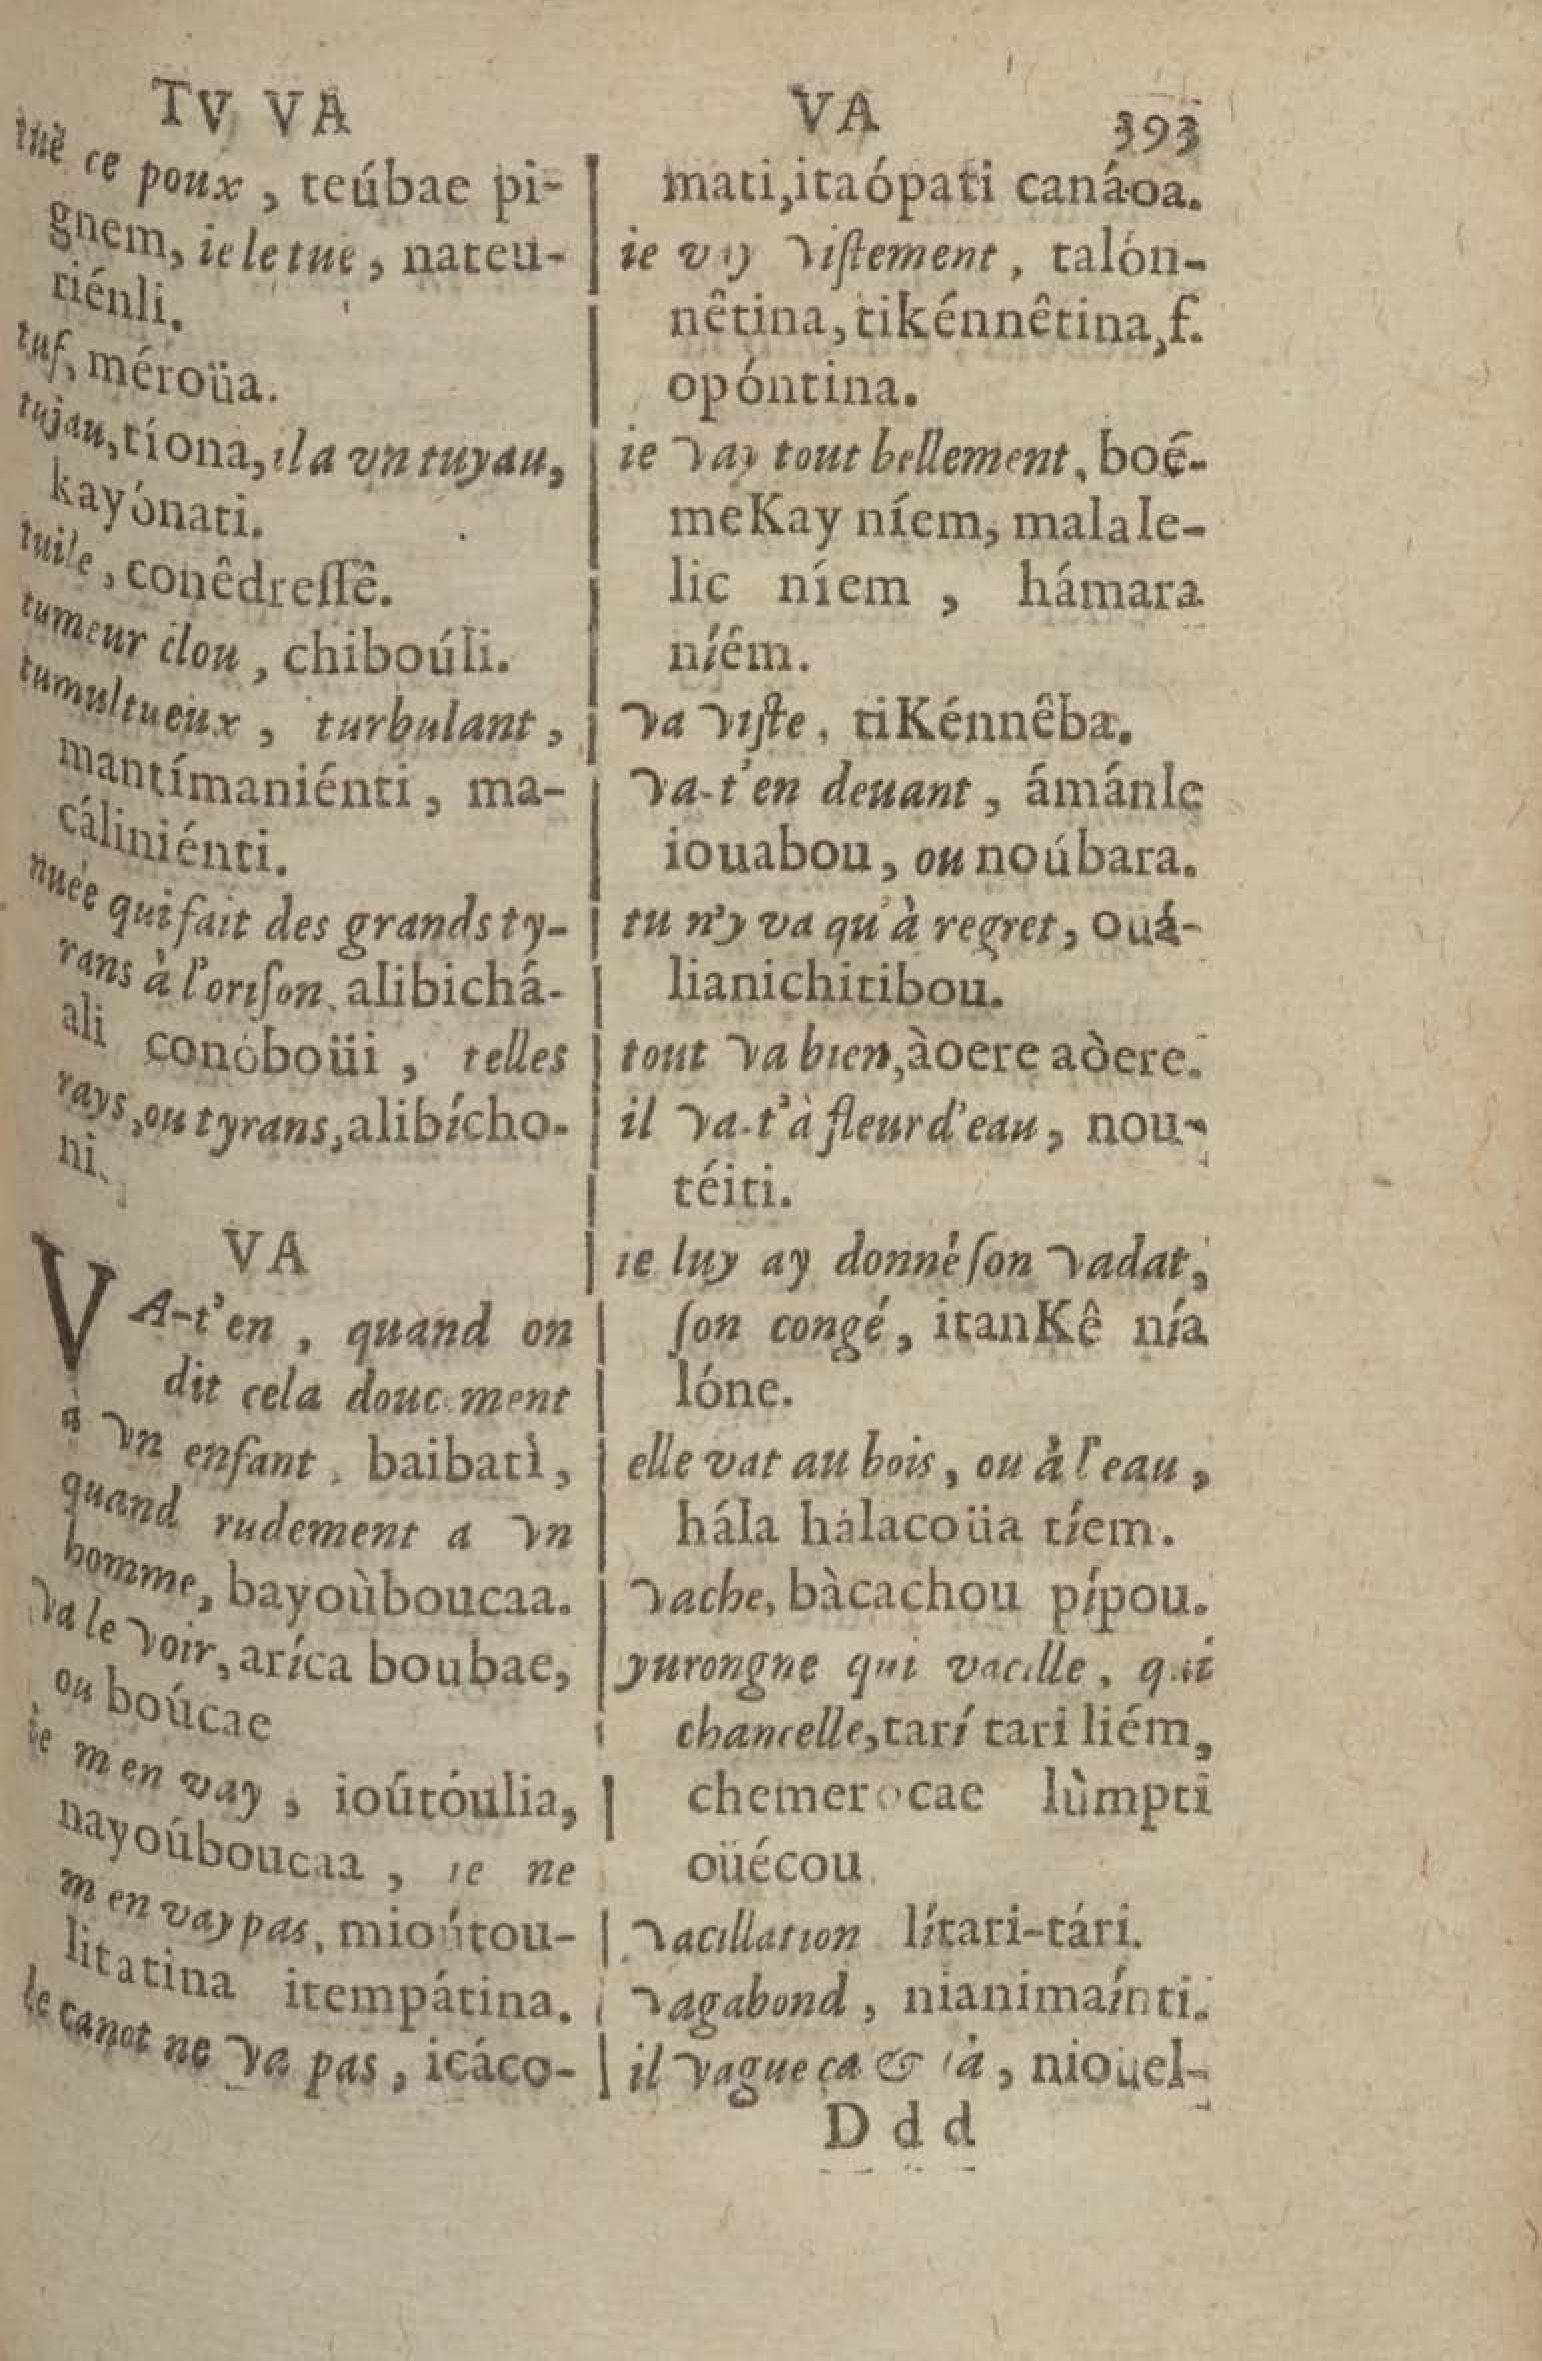 TV VA
tuë ce poux, teúbae pi-
gnem, ie le tuë, nateu-
tiénli.
tuf, méroüa.
tujau, tíona, il a vn tuyau,
kayónati.
tuile, conêdresſê.
tumeur clou, chiboúli.
tumultueux, turbulant,
mantímaniénti, ma-
cáliniénti.
nuée qui fait des grands ty-
rans à l'oriſon, alibichá-
ali conóboüi, telles
rays, ou tyrans, alibícho-
ni.
VA
VA-t'en, quand on
dit cela doucement
à vn enfant, baibatì,
quand rudement a vn
homme, bayoùboucaa.
va le voir, aríca boubae,
ou boúcae
ie m'en vay, ioútóulia,
nayoúboucaa, ie ne
m'en vay pas, mioútou-
litatina itempátina.
le canot ne va pas, icáco-
VA 393
mati, itaópati canáoa.
ie vay viſtement, talón-
nêtina, tikénnêtina, f.
opóntina.
ie vay tout bellement, boé-
meKay níem, malale-
lic níem, hámara
níêm.
va viſte, tiKénnêba.
va-t'en deuant, ámánle
iouabou, ou noúbara.
tu n'y va qu'à regret, ouá-
lianichitibou.
tout va bien, àoere aòere.
il va-t'à fleur d'eau, nou-
téiti.
ie luy ay donné ſon vadat,
ſon congé, itanKê nía
lóne.
elle vat au bois, ou à l'eau,
hála hálacoüa tíem.
vache, bàcachou pípou.
yurongne qui vacille, qui
chancelle, tarí tari liém,
chemerocae lùmpti
oüécou.
vacillation lítari-tári.
vagabond, nianimaínti.
il vague ça & là, niouel-
D d d